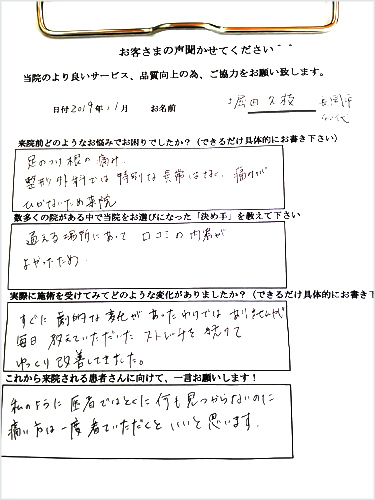 お客さまの声聞かせてください^ ^
当院のより良いサービス、品質向上の為、ご協力をお願い致します。
日付 2019年 11月 お名前 堀田久枝
来院前どのようなお悩みでお困りでしたか？（できるだけ具体的にお書き下さい）
足のつけ根の痛み。
整形外科では特別な異常はなく 痛みが
ひかないため来院
数多くの院がある中で当院をお選びになった「決め手」を教えて下さい
通える場所にあって 口コミの内容が
よかったため。
実際に施術を受けてみてどのような変化がありましたか？（できるだけ具体的にお書き下
すぐに劇的な変化があったわけではありませんが
毎日 教えていただいた ストレッチを続けて
ゆっくり改善してきました。
これから来院される患者さんに向けて、一言お願いします！
私のように 医者ではとくに何も見つからないのに
痛い方は一度 着ていただくと いいと思います.